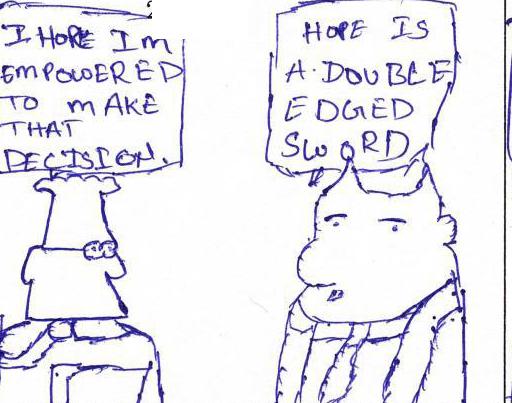 I HOPE IM
EMPOWERED
TO MAKE
THAT
DECISION.
HOPE IS
A DOUBLE
EDGED
SWORD